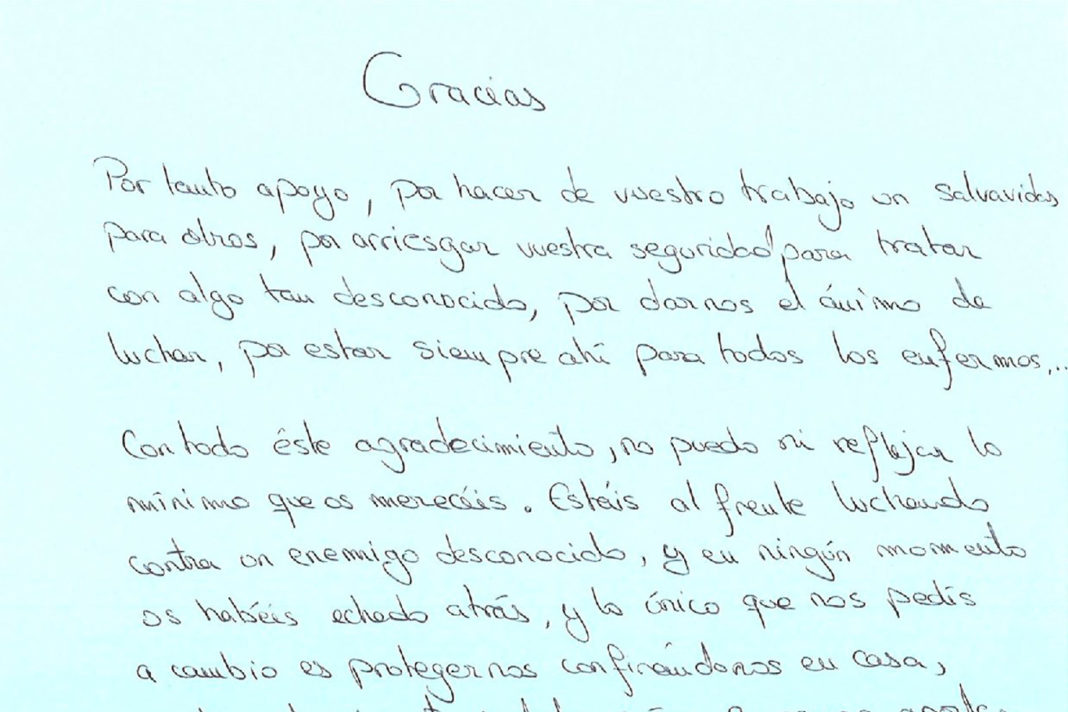 Gracias
Por tanto apoyo, por hacer de vuestro trabajo un salvavidas
para otros, por arriesgar vuestra seguridad para tratar
con algo tan desconocido, por darnos el ánimo de
luchar, por estar siempre ahí para todos los enfermos,..
Con todo éste agradecimiento, no puedo ni reflejar lo
mínimo que os merecéis. Estáis al frente luchando
contra un enemigo desconocido, y en ningún momento
os habéis echado atrás, y lo único que nos pedís
a cambio es protegernos confinándonos en casa,